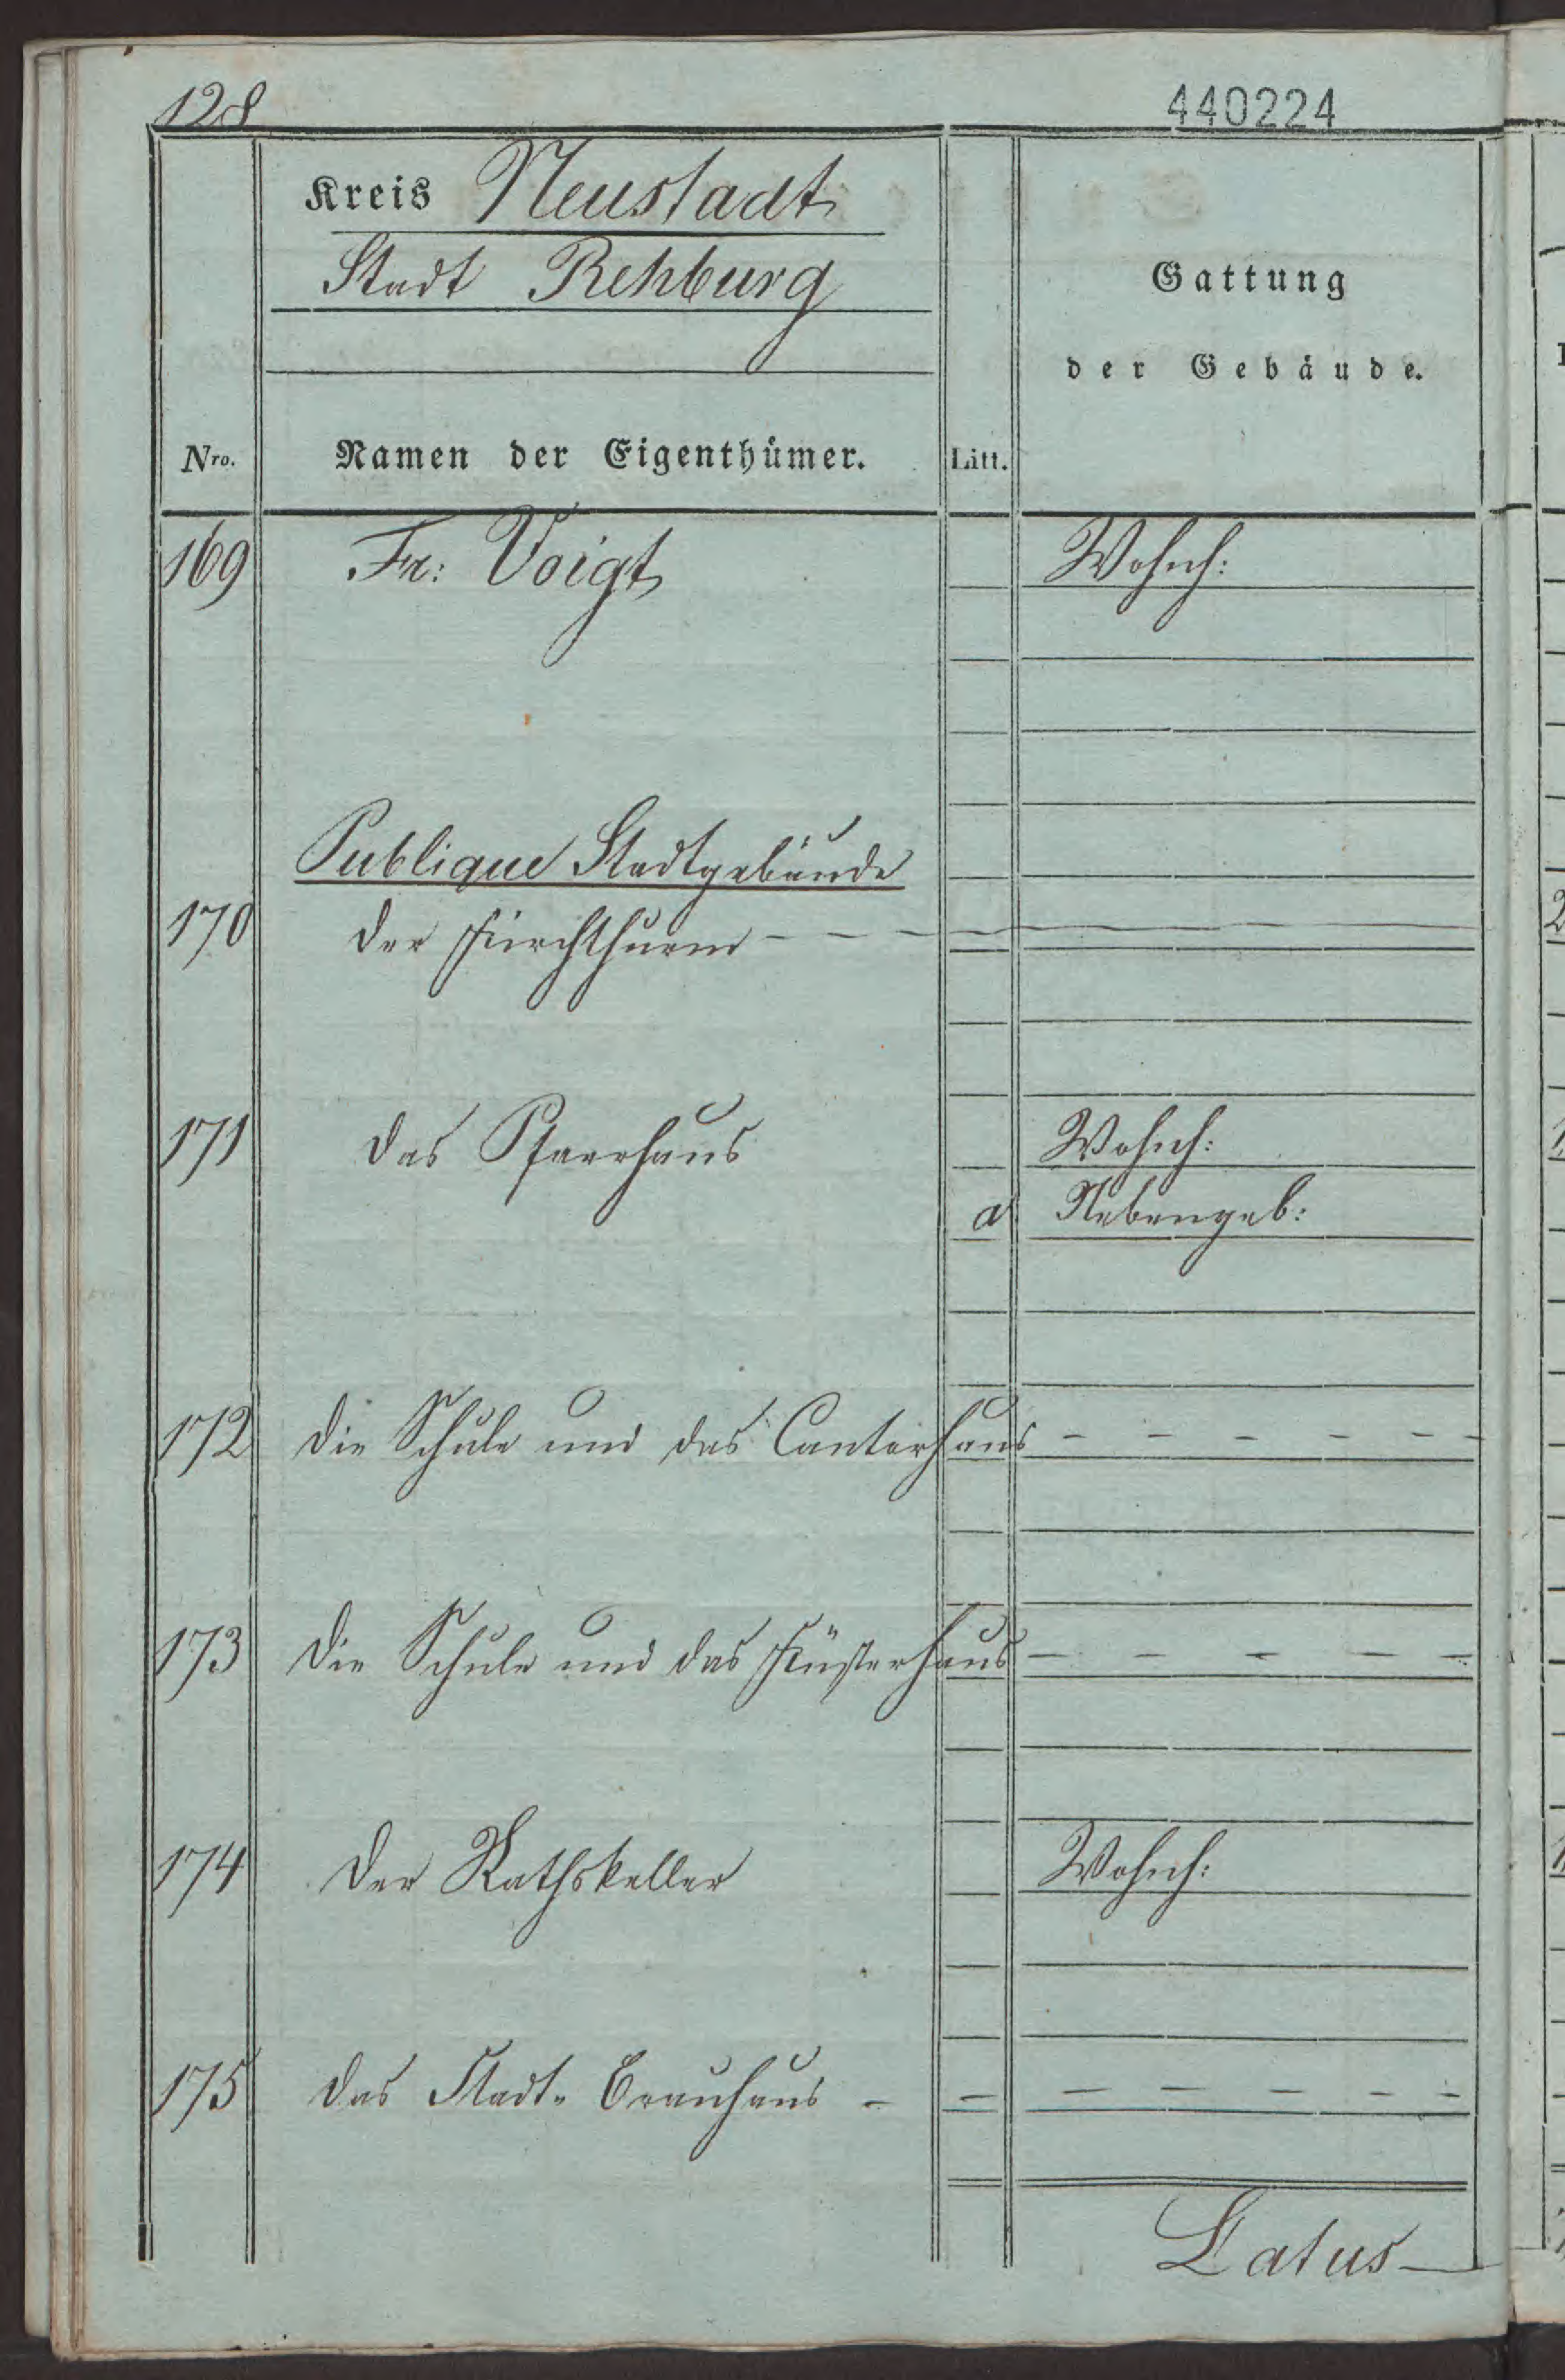 128
440224
Kreis Neustadt
Stadt Rehburg
Gattung
der Gebäude.
Nro. Namen der Eigenthümer. Litt.
169 Fr: Voigt Wohnh:
Publique Stadtgebäude
170 der Kirchthurm - - - -
171 das Pfarrhaus Wohnh:
a Nebengeb:
172 die Schule und das Cantorhaus - - - - - -
173 die Schule und das Küsterhaus - - - - -
174 der Rathskeller Wohnh:
175 das Stadt- Brauhaus - - - - - - -
Latus